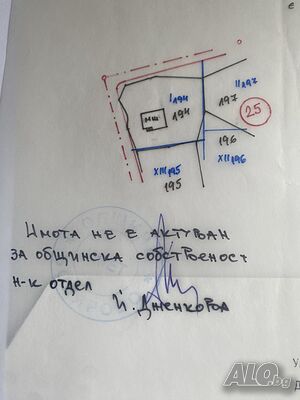 е
II 197
197
I 194
194
МЖ
25
196
XII 196
XIII 195
195
Имота не е актуван
за общинска собственост
н-к отдел
Й. Дженкова
ALO.bg